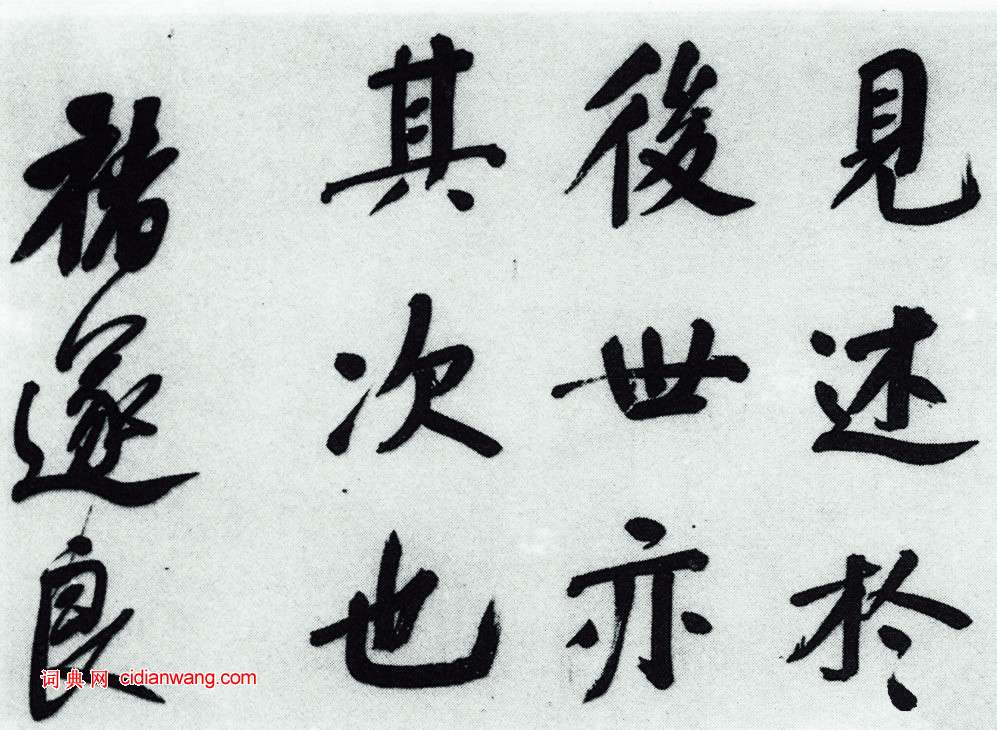 見述於
後世亦
其次也
褚遂良
词典网 cidianwang.com